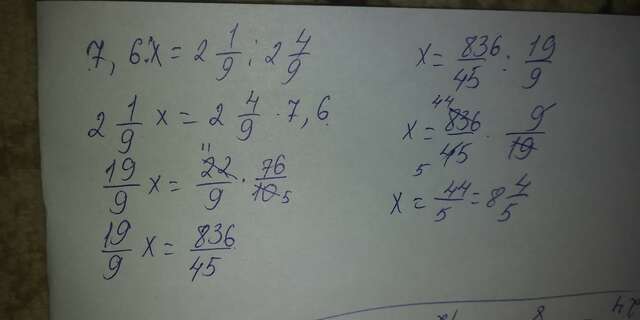 7,6:x = 2 1/9 : 2 4/9
2 1/9 x = 2 4/9 · 7,6
19/9 x = 22/9 · 76/10 11 5
19/9 x = 836/45
x = 836/45 : 19/9
x = 836/45 · 9/19 44 5
x = 44/5 = 8 4/5